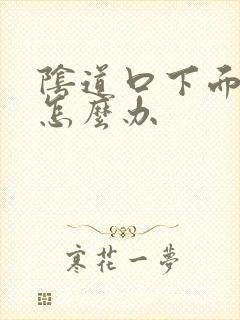 陰道口下而
怎麼办
寒花一夢